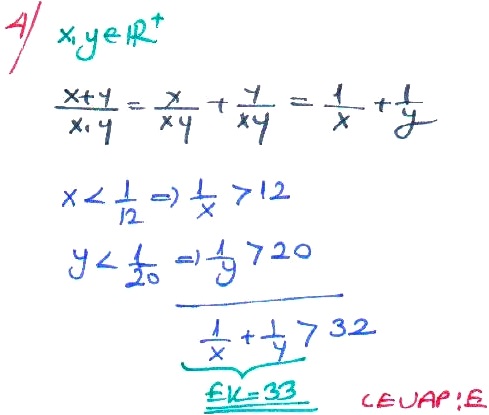 4/ x, y ∈ ℝ⁺
(x+y)/(x.y) = x/(xy) + y/(xy) = 1/x + 1/y
x < 1/12 => 1/x > 12
y < 1/20 => 1/y > 20
1/x + 1/y > 32
EK=33
CEVAP:E